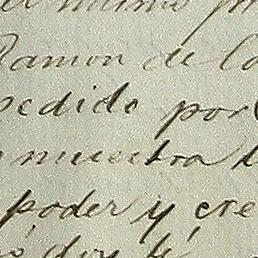 el mismo
Ramon de Ca
pedido por
muestra
poder y cre